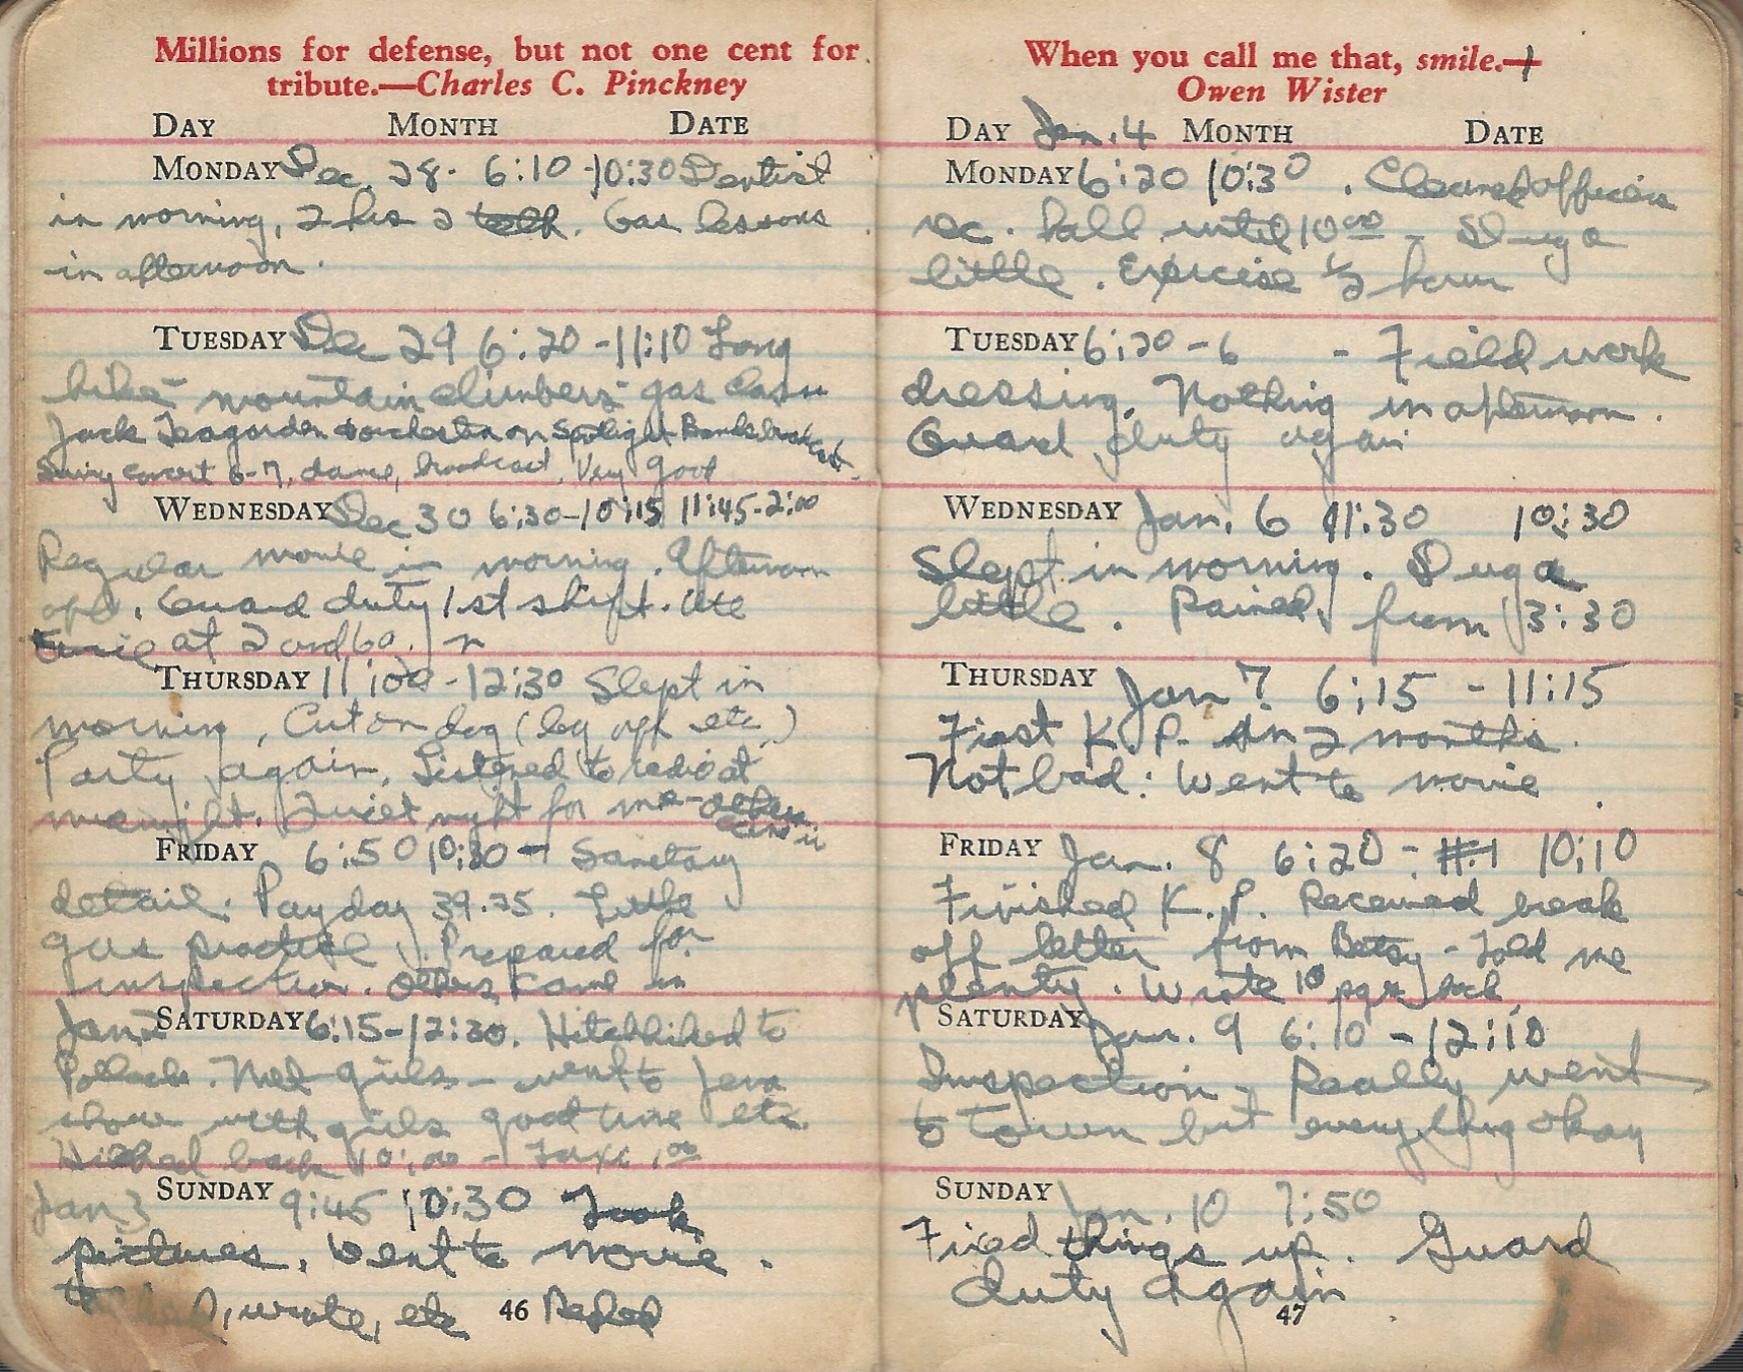 Millions for defense, but not one cent for
tribute.—Charles C. Pinckney
DAY MONTH DATE
MONDAY Dec. 28. 6:10-10:30 Dentist
in morning, 2 hrs 2 teeth. Gas lessons
in afternoon.
TUESDAY Dec 29 6:20-11:10 Long
hike - mountain climbers - gas class
Jack Teagarden & orchestra on Spotlight Bands broadcast
Swing concert 6-7, dance, broadcast. Very good
WEDNESDAY Dec 30 6:30-10:15 11:45-2:00
Regular movie in morning. Afternoon
off. Guard duty 1st shift. Ate
at 2 and 6a.m
THURSDAY 11:00-12:30 Slept in
morning, Cut on dog (leg off etc.)
Party again. Listened to radio at
midnight. Quiet night for me-
FRIDAY 6:50 10:30 - Sanitary
detail. Pay day 39.25. Little
gas practice. Prepared for
inspection. Others came in
Jan 2 SATURDAY 6:15-12:30. Hitchhiked to
Pollock. Met girls - went to Jena
show with girls good time etc.
Hitched back 10:00 - Taxi 1.00
Jan 3 SUNDAY 9:45 10:30 Took
pictures. Went to movie.
wrote, etc 46
When you call me that, smile.—
Owen Wister
DAY Jan. 4 MONTH DATE
MONDAY 6:20 10:30. Cleaned officers
rec. hall until 10 00 - Dug a
little. Exercise 1/2 hour
TUESDAY 6:20-6 - Field work
dressing. Nothing in afternoon.
Guard duty again
WEDNESDAY Jan. 6 11:30 10:30
Slept in morning. Dug a
little. Rained from 3:30
THURSDAY Jan 7 6:15 - 11:15
First K.P. in 2 months.
Not bad: Went to movie.
FRIDAY Jan. 8 6:20 - 10:10
Finished K.P. Received break
off letter from Betsy - Told me
plenty. Wrote 10 pgs back
SATURDAY Jan. 9 6:10 - 12:10
Inspection - Really went
to town but everything okay
SUNDAY Jan. 10 7:50
Fixed things up. Guard
duty again
47